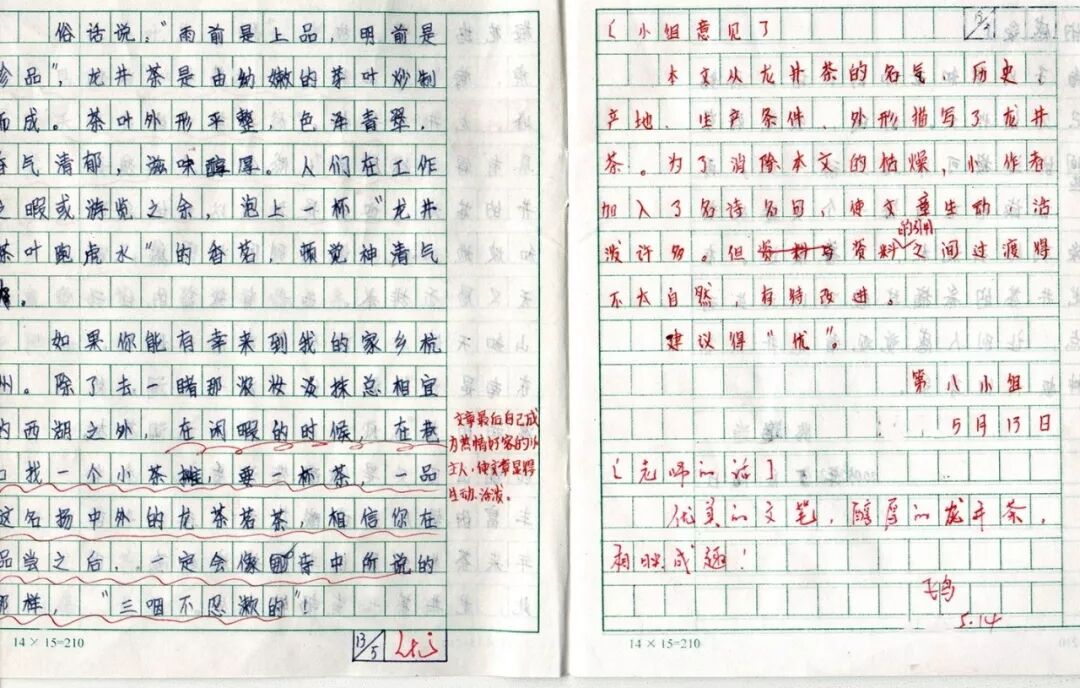 俗话说："雨前是上品，明前是
珍品"，龙井茶是由幼嫩的芽叶炒制
而成。茶叶外形平整，色泽青翠，
香气清郁，滋味醇厚。人们在工作
之暇或游览之余，泡上一杯"龙井
茶叶跑虎水"的香茗，顿觉神清气
。
如果你能有幸来到我的家乡杭
州。除了去一睹那浓妆淡抹总相宜
的西湖之外，在闲暇的时候，在巷
口找一个小茶摊，要一杯茶，一品
这名扬中外的龙茶茗茶，相信你在
品尝之后，一定会像回中所说的
那样，"三咽不忍漱的"！
文章最后自己成
为热情好客的小
主人，使文章显得
生动活泼。
14 × 15=210
13/5
[小组意见]
本文从龙井茶的名气、历史、
产地、生产条件、外形描写了龙井
茶。为了消除本文的枯燥，小作者
加入了名诗名句，使文章生动、活
泼许多。但资料的引用之间过渡得
不太自然，有待改进。
建议得"优"。
第八小组
5月13日
[老师的话]
优美的文笔，醇厚的龙井茶，
相映成趣！
5.14
14 × 15=210